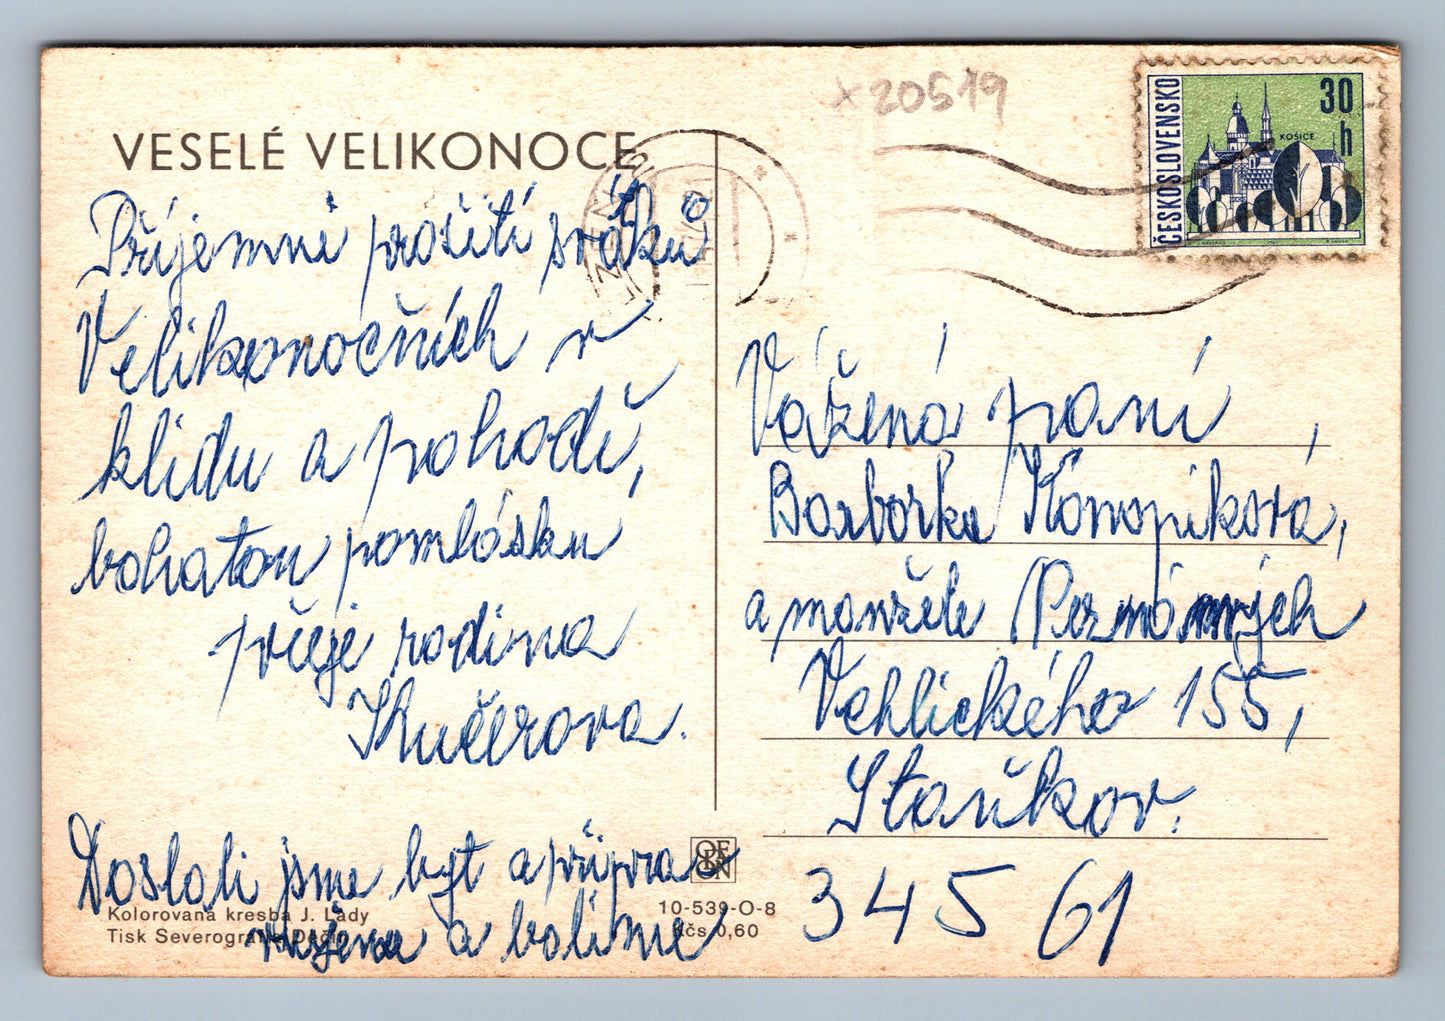 VESELÉ VELIKONOCE
Příjemné prožití svátků
Velikonočních v
klidu a pohodě,
bohatou pomlásku
přeje rodina
Kučerova.
Dostali jsme byt a připra
a balíme
Kolorovaná kresba J. Lady
Tisk Severografia Děčín
10-539-O-8
Kčs 0,60
× 20519
ČESKOSLOVENSKO
30 h
KOŠICE
Vážená paní,
Barborka Konopíková,
a manžele
Vohlického 155,
Staňkov.
345 61